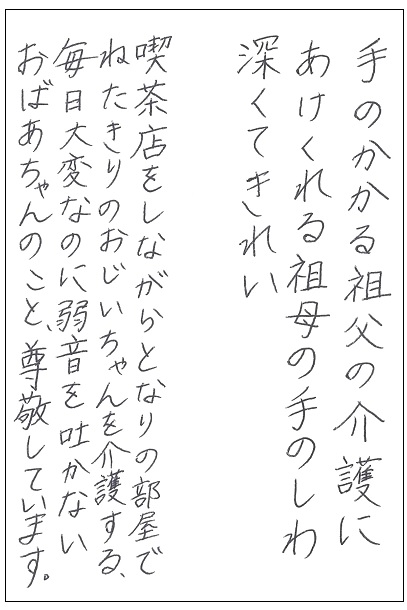 手のかかる祖父の介護に
あけくれる祖母の手のしわ
深くてきれい
喫茶店をしながらとなりの部屋で
ねたきりのおじいちゃんを介護する、
毎日大変なのに弱音を吐かない
おばあちゃんのこと、尊敬しています。